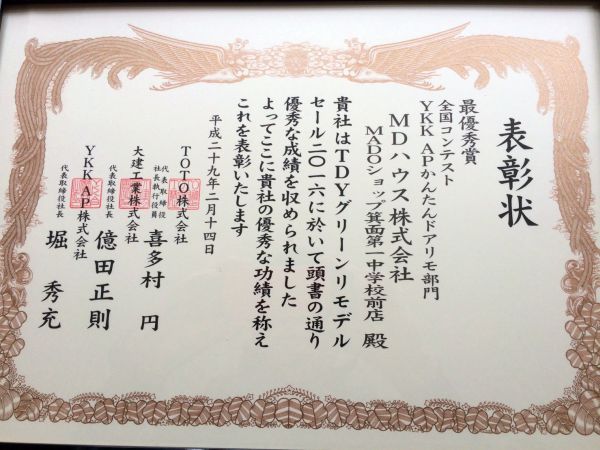 表彰状
最優秀賞
全国コンテスト
YKK APかんたんドアリモ部門
MDハウス株式会社
MADOショップ箕面第一中学校前店 殿
貴社はTDYグリーンリモデル
セール二〇一六に於いて頭書の通り
優秀な成績を収められました
よってここに貴社の優秀な功績を称え
これを表彰いたします
平成二十九年二月十四日
TOTO株式会社
代表取締役
社長執行役員 喜多村 円
大建工業株式会社
代表取締役社長 億田正則
YKK AP株式会社
代表取締役社長 堀 秀充